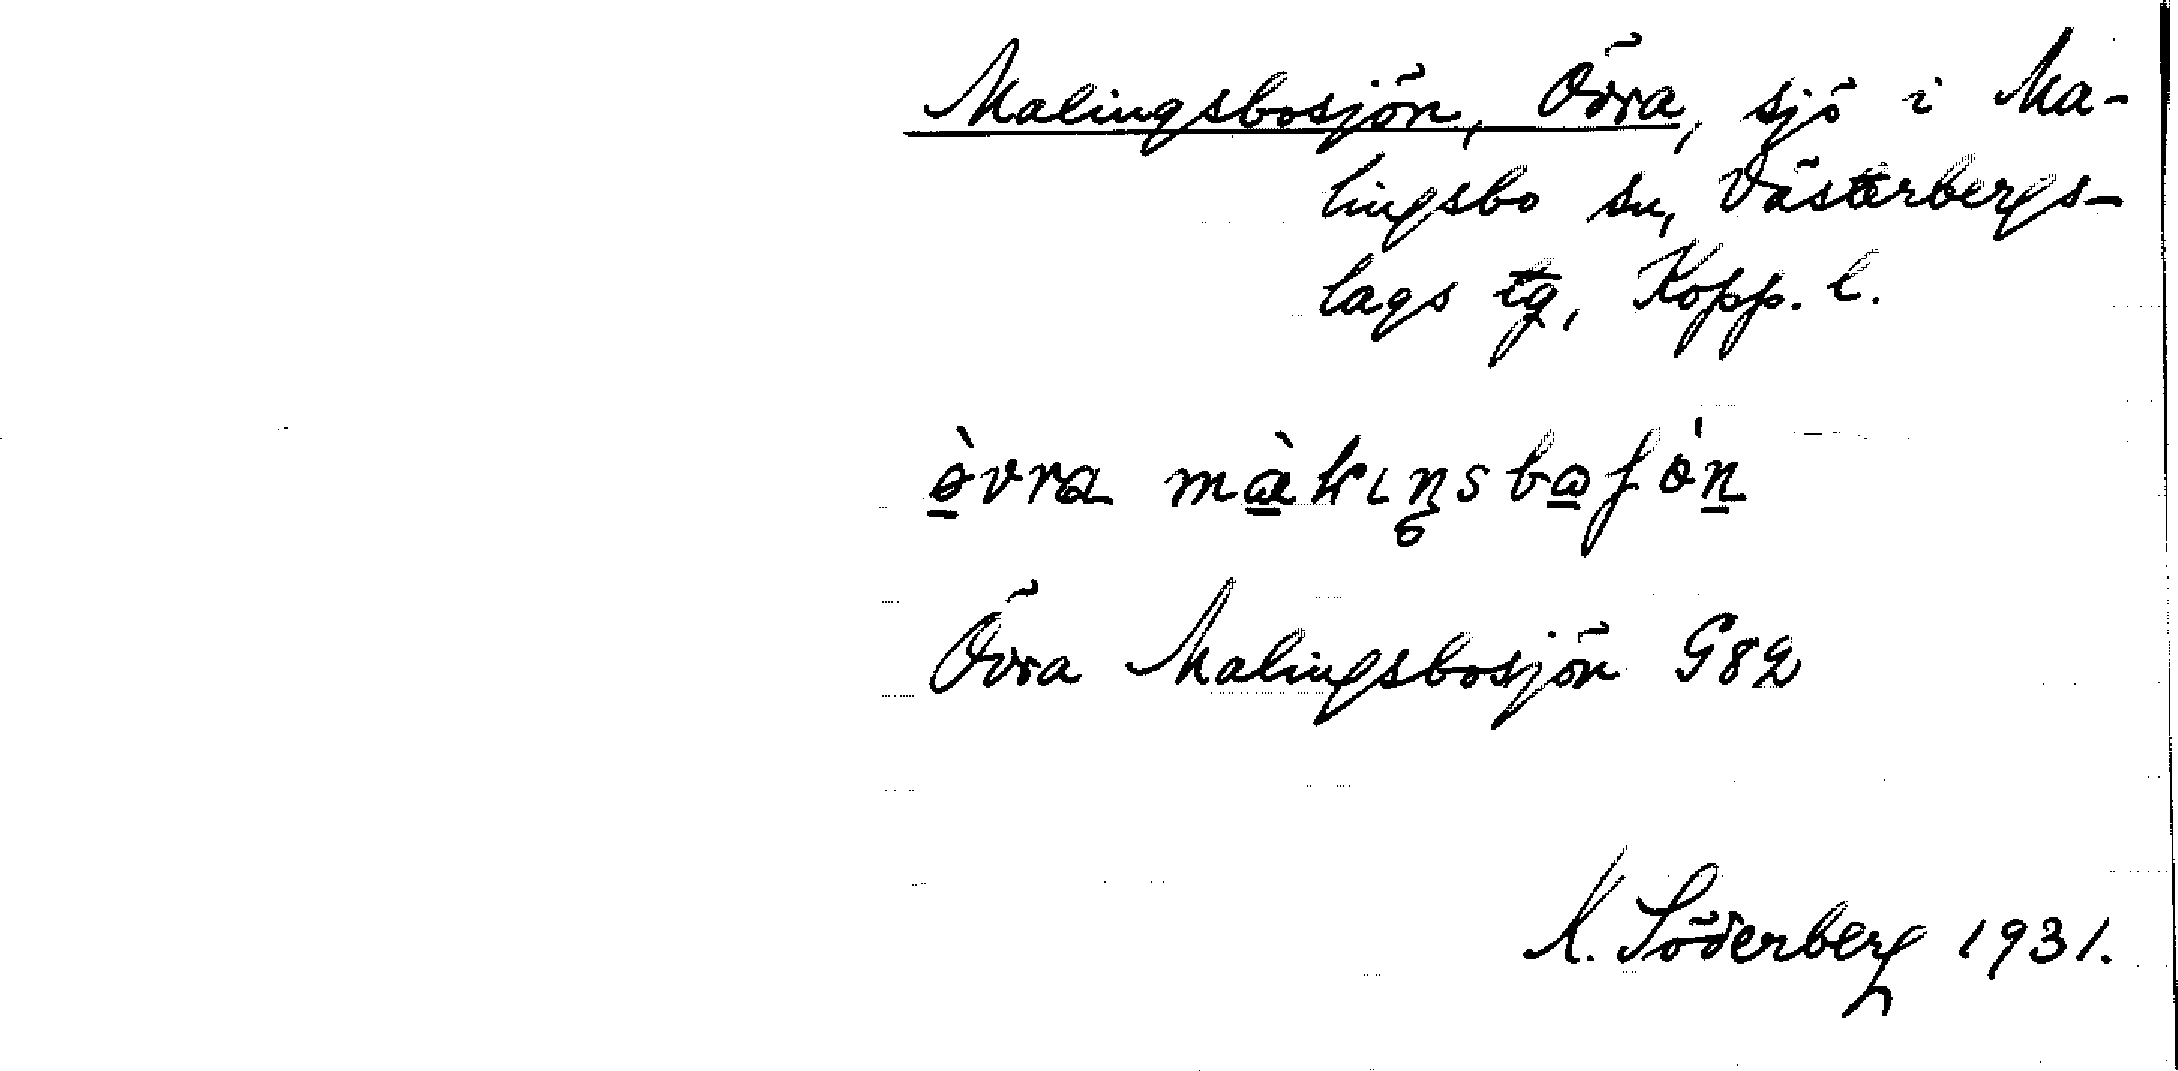 Malingsbosjön, Övra, sjö i Ma-
lingsbo sn, Västerbergs-
lags tg, Kopp. l.
Övra Malingsbosjön G82
K. Söderberg 1931.